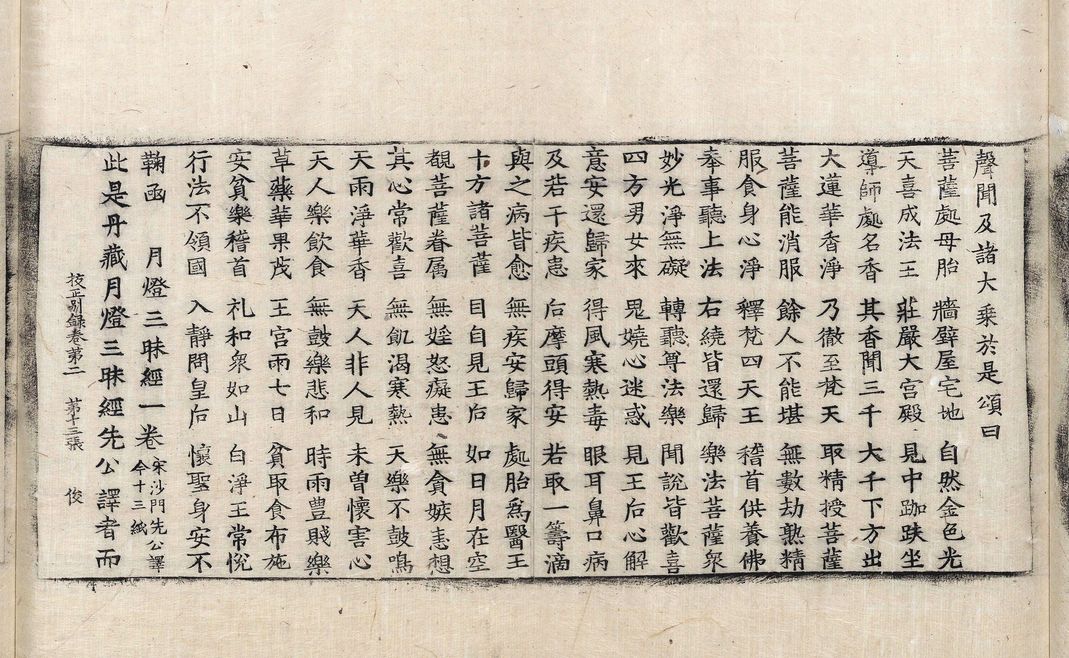 聲聞及諸大乗於是頌曰
菩薩處母胎　牆壁屋宅地　自然金色光
天喜成法王　莊嚴大宮殿　見中跏趺坐
導師處名香　其香聞三千　大千下方出
大蓮華香淨　乃徹至梵天　取精授菩薩
菩薩能消服　餘人不能堪　無數劫熟精
服食身心淨　釋梵四天王　稽首供養佛
奉事聽上法　右繞皆還歸　樂法菩薩衆
妙光淨無礙　轉聽尊法樂　聞說皆歡喜
四方男女來　鬼嬈心迷惑　見王后心解
意安還歸家　得風寒熱毒　眼耳鼻口病
及若干疾患　后摩頭得安　若取一籌滴
與之病皆愈　無疾安歸家　處胎爲醫王
十方諸菩薩　目自見王后　如日月在空
覩菩薩眷属　無婬怒癡患　無貪嫉恚想
其心常歡喜　無飢渴寒熱　天樂不鼓鳴
天雨淨華香　天人非人見　未曽懷害心
天人樂飲食　無鼓樂悲和　時雨豊賤樂
草藥華果茂　王宮雨七日　貧取食布施
安貧樂稽首　礼和衆如山　白淨王常悅
行法不領國　入靜問皇后　懷聖身安不
鞠函　月燈三昧經一卷　宋沙門先公譯　今十三紙
此是丹藏月燈三昧經先公譯者而
校正别録卷第二　第十三張　俊